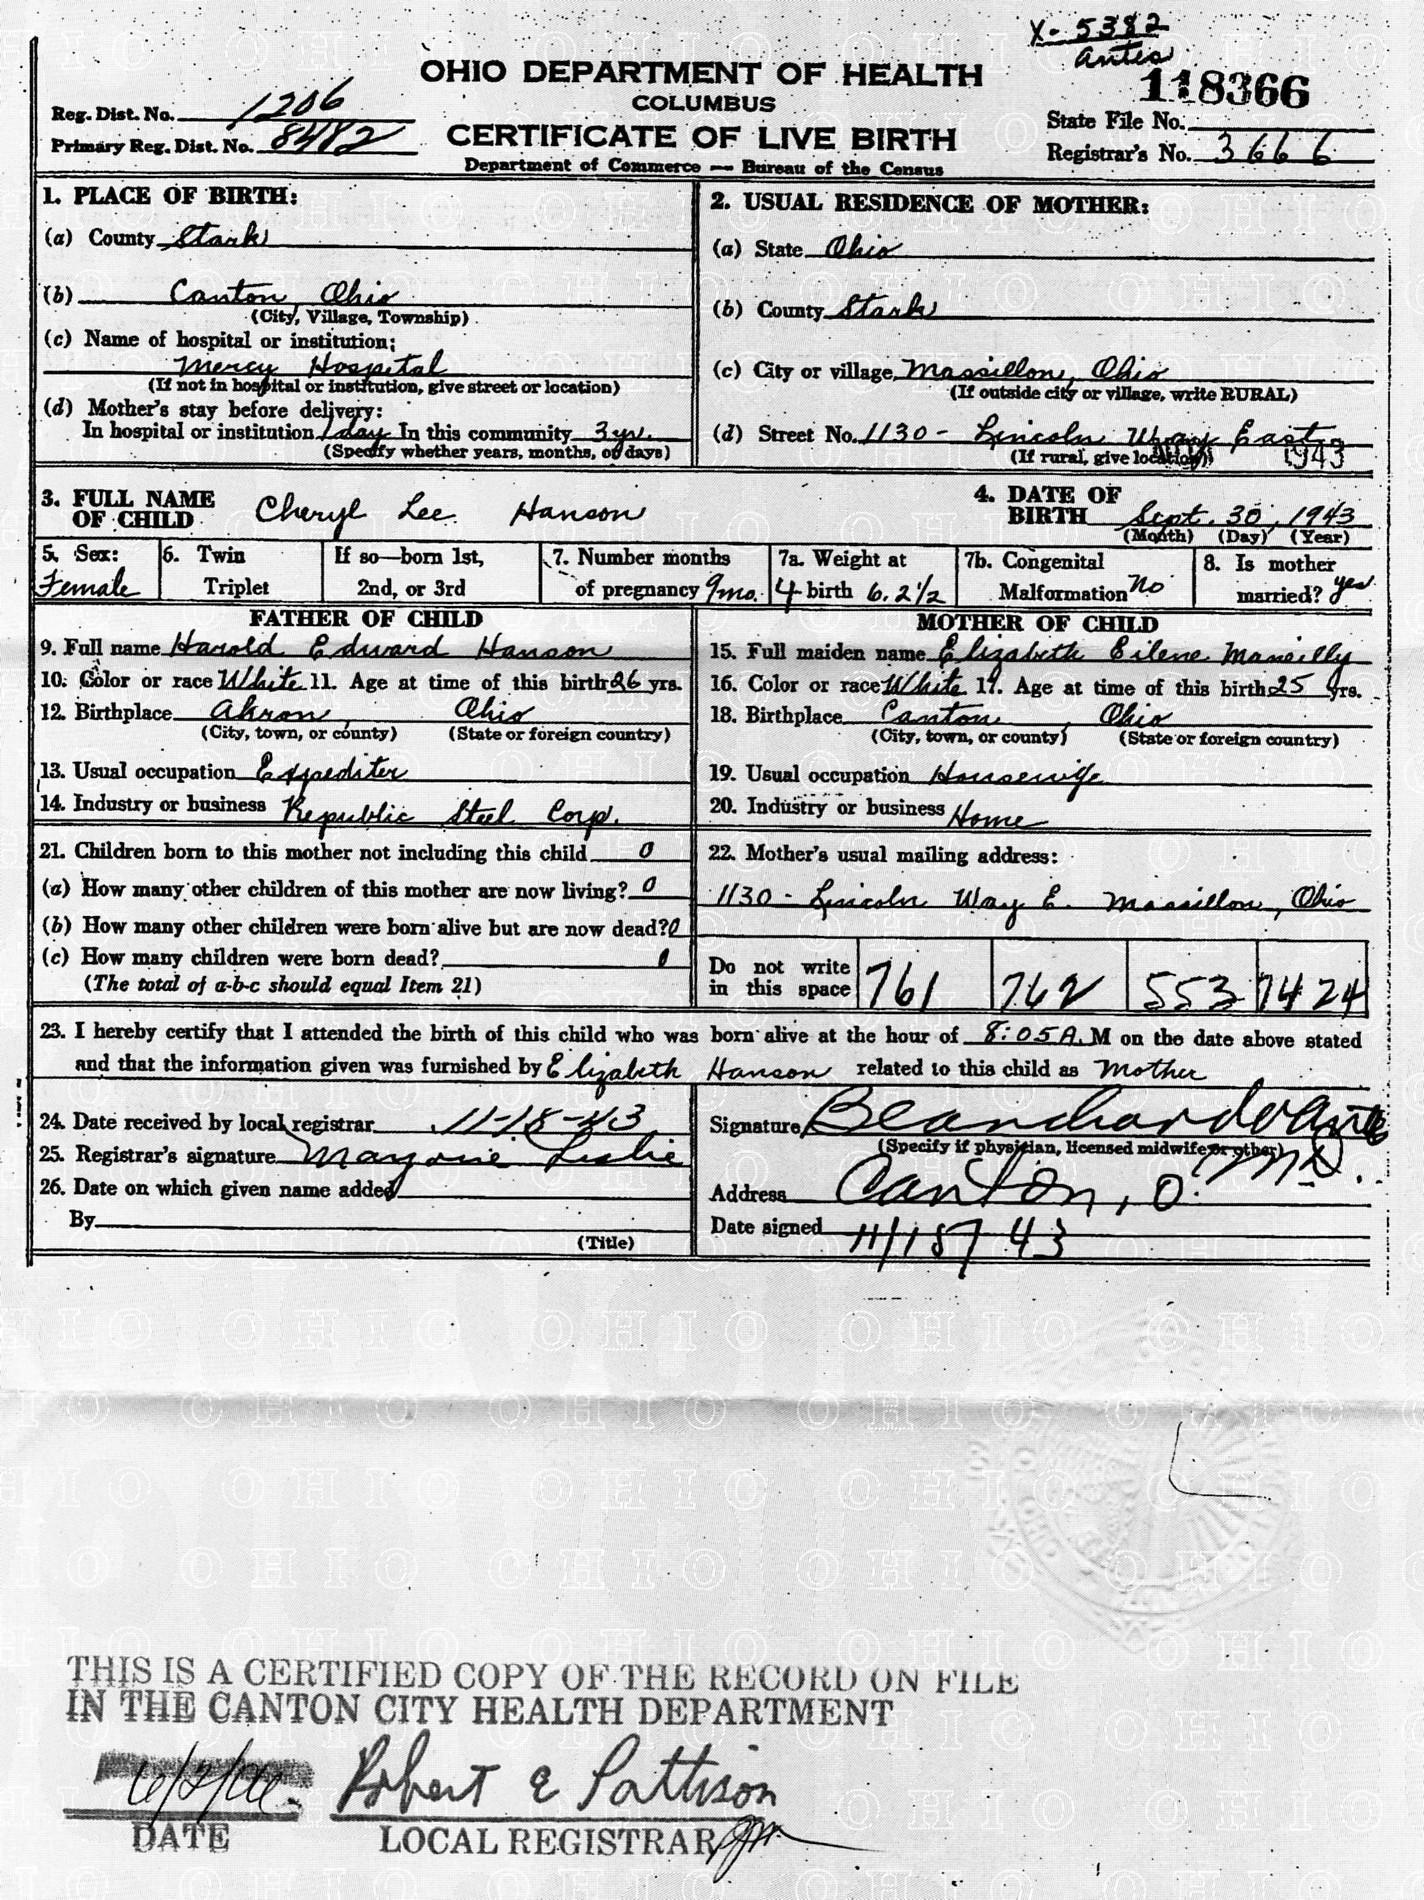 X-5382
Antes
118366
OHIO DEPARTMENT OF HEALTH
COLUMBUS
CERTIFICATE OF LIVE BIRTH
Department of Commerce — Bureau of the Census
Reg. Dist. No. 1206
Primary Reg. Dist. No. 8482
State File No.
Registrar's No. 3666
1. PLACE OF BIRTH:
(a) County Stark
(b) Canton, Ohio
(City, Village, Township)
(c) Name of hospital or institution:
Mercy Hospital
(If not in hospital or institution, give street or location)
(d) Mother's stay before delivery:
In hospital or institution 1 day In this community 3 yr.
(Specify whether years, months, or days)
2. USUAL RESIDENCE OF MOTHER:
(a) State Ohio
(b) County Stark
(c) City or village Massillon, Ohio
(If outside city or village, write RURAL)
(d) Street No. 1130 - Lincoln Way East
(If rural, give location) 1943
3. FULL NAME OF CHILD Cheryl Lee Hanson
4. DATE OF BIRTH Sept. 30, 1943
(Month) (Day) (Year)
5. Sex: Female
6. Twin Triplet
If so—born 1st, 2nd, or 3rd
7. Number months of pregnancy 9mo.
7a. Weight at birth 6. 2 1/2
7b. Congenital Malformation No
8. Is mother married? yes
FATHER OF CHILD
9. Full name Harold Edward Hanson
10. Color or race White 11. Age at time of this birth 26 yrs.
12. Birthplace Akron, Ohio
(City, town, or county) (State or foreign country)
13. Usual occupation Expediter
14. Industry or business Republic Steel Corp.
MOTHER OF CHILD
15. Full maiden name Elizabeth Eilene
16. Color or race White 17. Age at time of this birth 25 yrs.
18. Birthplace Canton, Ohio
(City, town, or county) (State or foreign country)
19. Usual occupation Housewife
20. Industry or business Home
21. Children born to this mother not including this child 0
(a) How many other children of this mother are now living? 0
(b) How many other children were born alive but are now dead? 0
(c) How many children were born dead? 0
(The total of a-b-c should equal Item 21)
22. Mother's usual mailing address:
1130 - Lincoln Way E. Massillon, Ohio
Do not write in this space 761 762 553 7424
23. I hereby certify that I attended the birth of this child who was born alive at the hour of 8:05 A. M on the date above stated
and that the information given was furnished by Elizabeth Hanson related to this child as Mother
24. Date received by local registrar 11-18-43
25. Registrar's signature Marjorie Leslie
26. Date on which given name added
By
(Title)
Signature M.D.
(Specify if physician, licensed midwife or other)
Address Canton, O.
Date signed 11/15/43
THIS IS A CERTIFIED COPY OF THE RECORD ON FILE
IN THE CANTON CITY HEALTH DEPARTMENT
Robert E Pattison
DATE LOCAL REGISTRAR